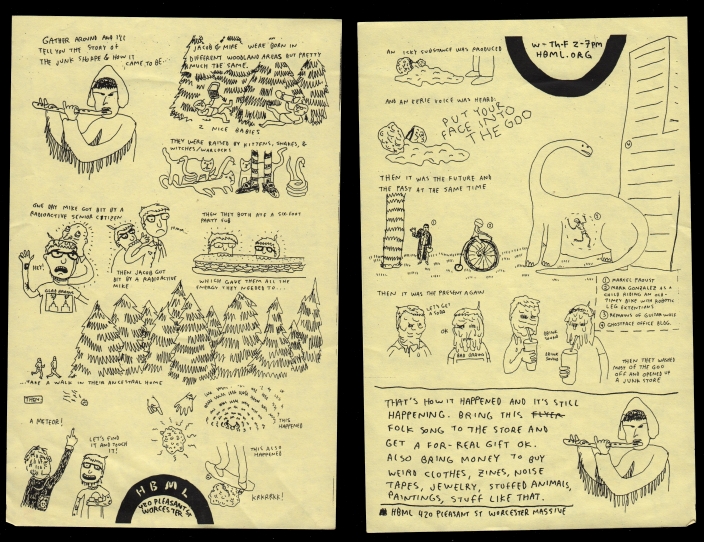 GATHER AROUND AND I'LL
TELL YOU THE STORY OF
THE JUNK SHOPE & HOW IT
CAME TO BE...
JACOB & MIKE WERE BORN IN
DIFFERENT WOODLAND AREAS BUT PRETTY
MUCH THE SAME.
2 NICE BABIES
THEY WERE RAISED BY KITTENS, SNAKES, &
WITCHES/WARLOCKS
ONE DAY MIKE GOT BIT BY A
RADIOACTIVE SENIOR CITIZEN
HEY!
THEN JACOB GOT
BIT BY A RADIOACTIVE
MIKE
THEN THEY BOTH ATE A SIX-FOOT
PARTY SUB
WHICH GAVE THEM ALL THE
ENERGY THEY NEEDED TO...
...TAKE A WALK IN THEIR ANCESTRAL HOME
THEN:
A METEOR!
LET'S FIND
IT AND TOUCH
IT!
THIS
HAPPENED
THIS ALSO
HAPPENED
KRKRRKK!
HBML
420 PLEASANT ST
WORCESTER
AN ICKY SUBSTANCE WAS PRODUCED
W-TH-F 2-7PM
HBML.ORG
AND AN EERIE VOICE WAS HEARD:
PUT YOUR
FACE INTO
THE GOO
THEN IT WAS THE FUTURE AND
THE PAST AT THE SAME TIME
1
2
3
4
1 MARCEL PROUST
2 MARK GONZALEZ AS A
CHILD RIDING AN OLD-
TIMEY BIKE WITH ROBOTIC
LEG EXTENTIONS
3 REMAINS OF GUITAR WOLF
4 GHOSTFACE OFFICE BLDG.
THEN IT WAS THE PRESENT AGAIN
LET'S GET
A SODA
OK
BAD BRAINS
DRINK
SOUND
DRINK
SOUND
THEN THEY WASHED
MOST OF THE GOO
OFF AND OPENED UP
A JUNK STORE
THAT'S HOW IT HAPPENED AND IT'S STILL
HAPPENING. BRING THIS FLYER
FOLK SONG TO THE STORE AND
GET A FOR-REAL GIFT OK.
ALSO BRING MONEY TO BUY
WEIRD CLOTHES, ZINES, NOISE
TAPES, JEWELRY, STUFFED ANIMALS,
PAINTINGS, STUFF LIKE THAT.
HBML 420 PLEASANT ST WORCESTER MASSIVE